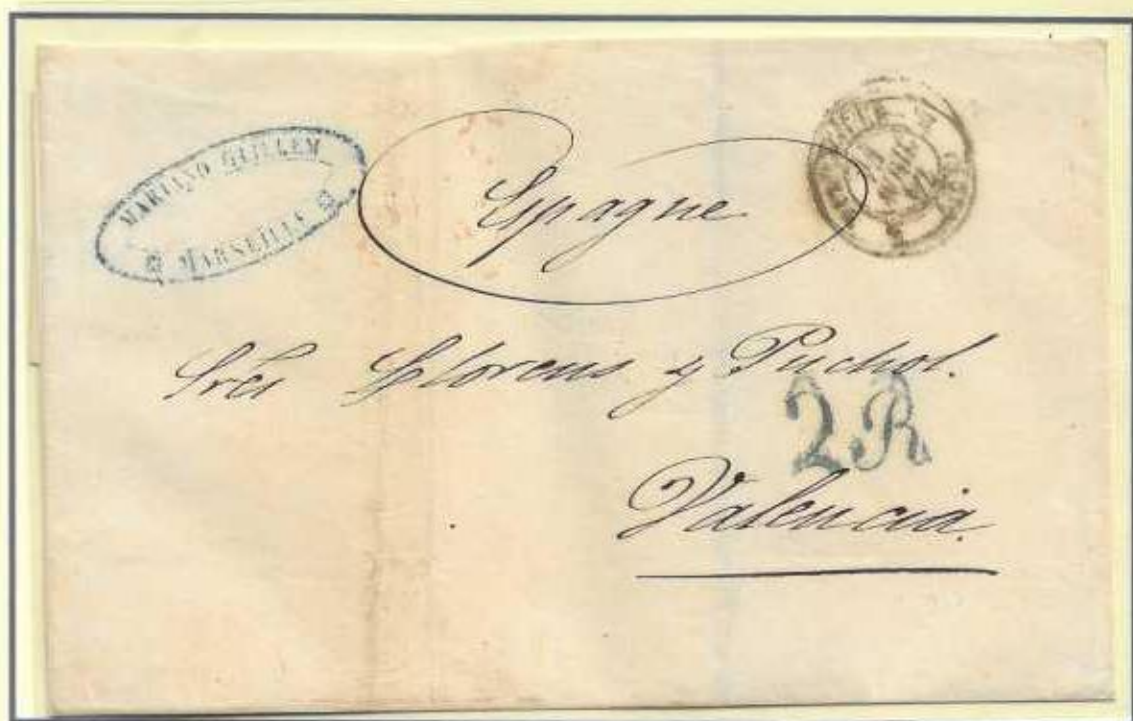 MARIANO GUILLEM
MARSEILLE
Espagne
Sres Llorens y Puchol.
2R
Valencia